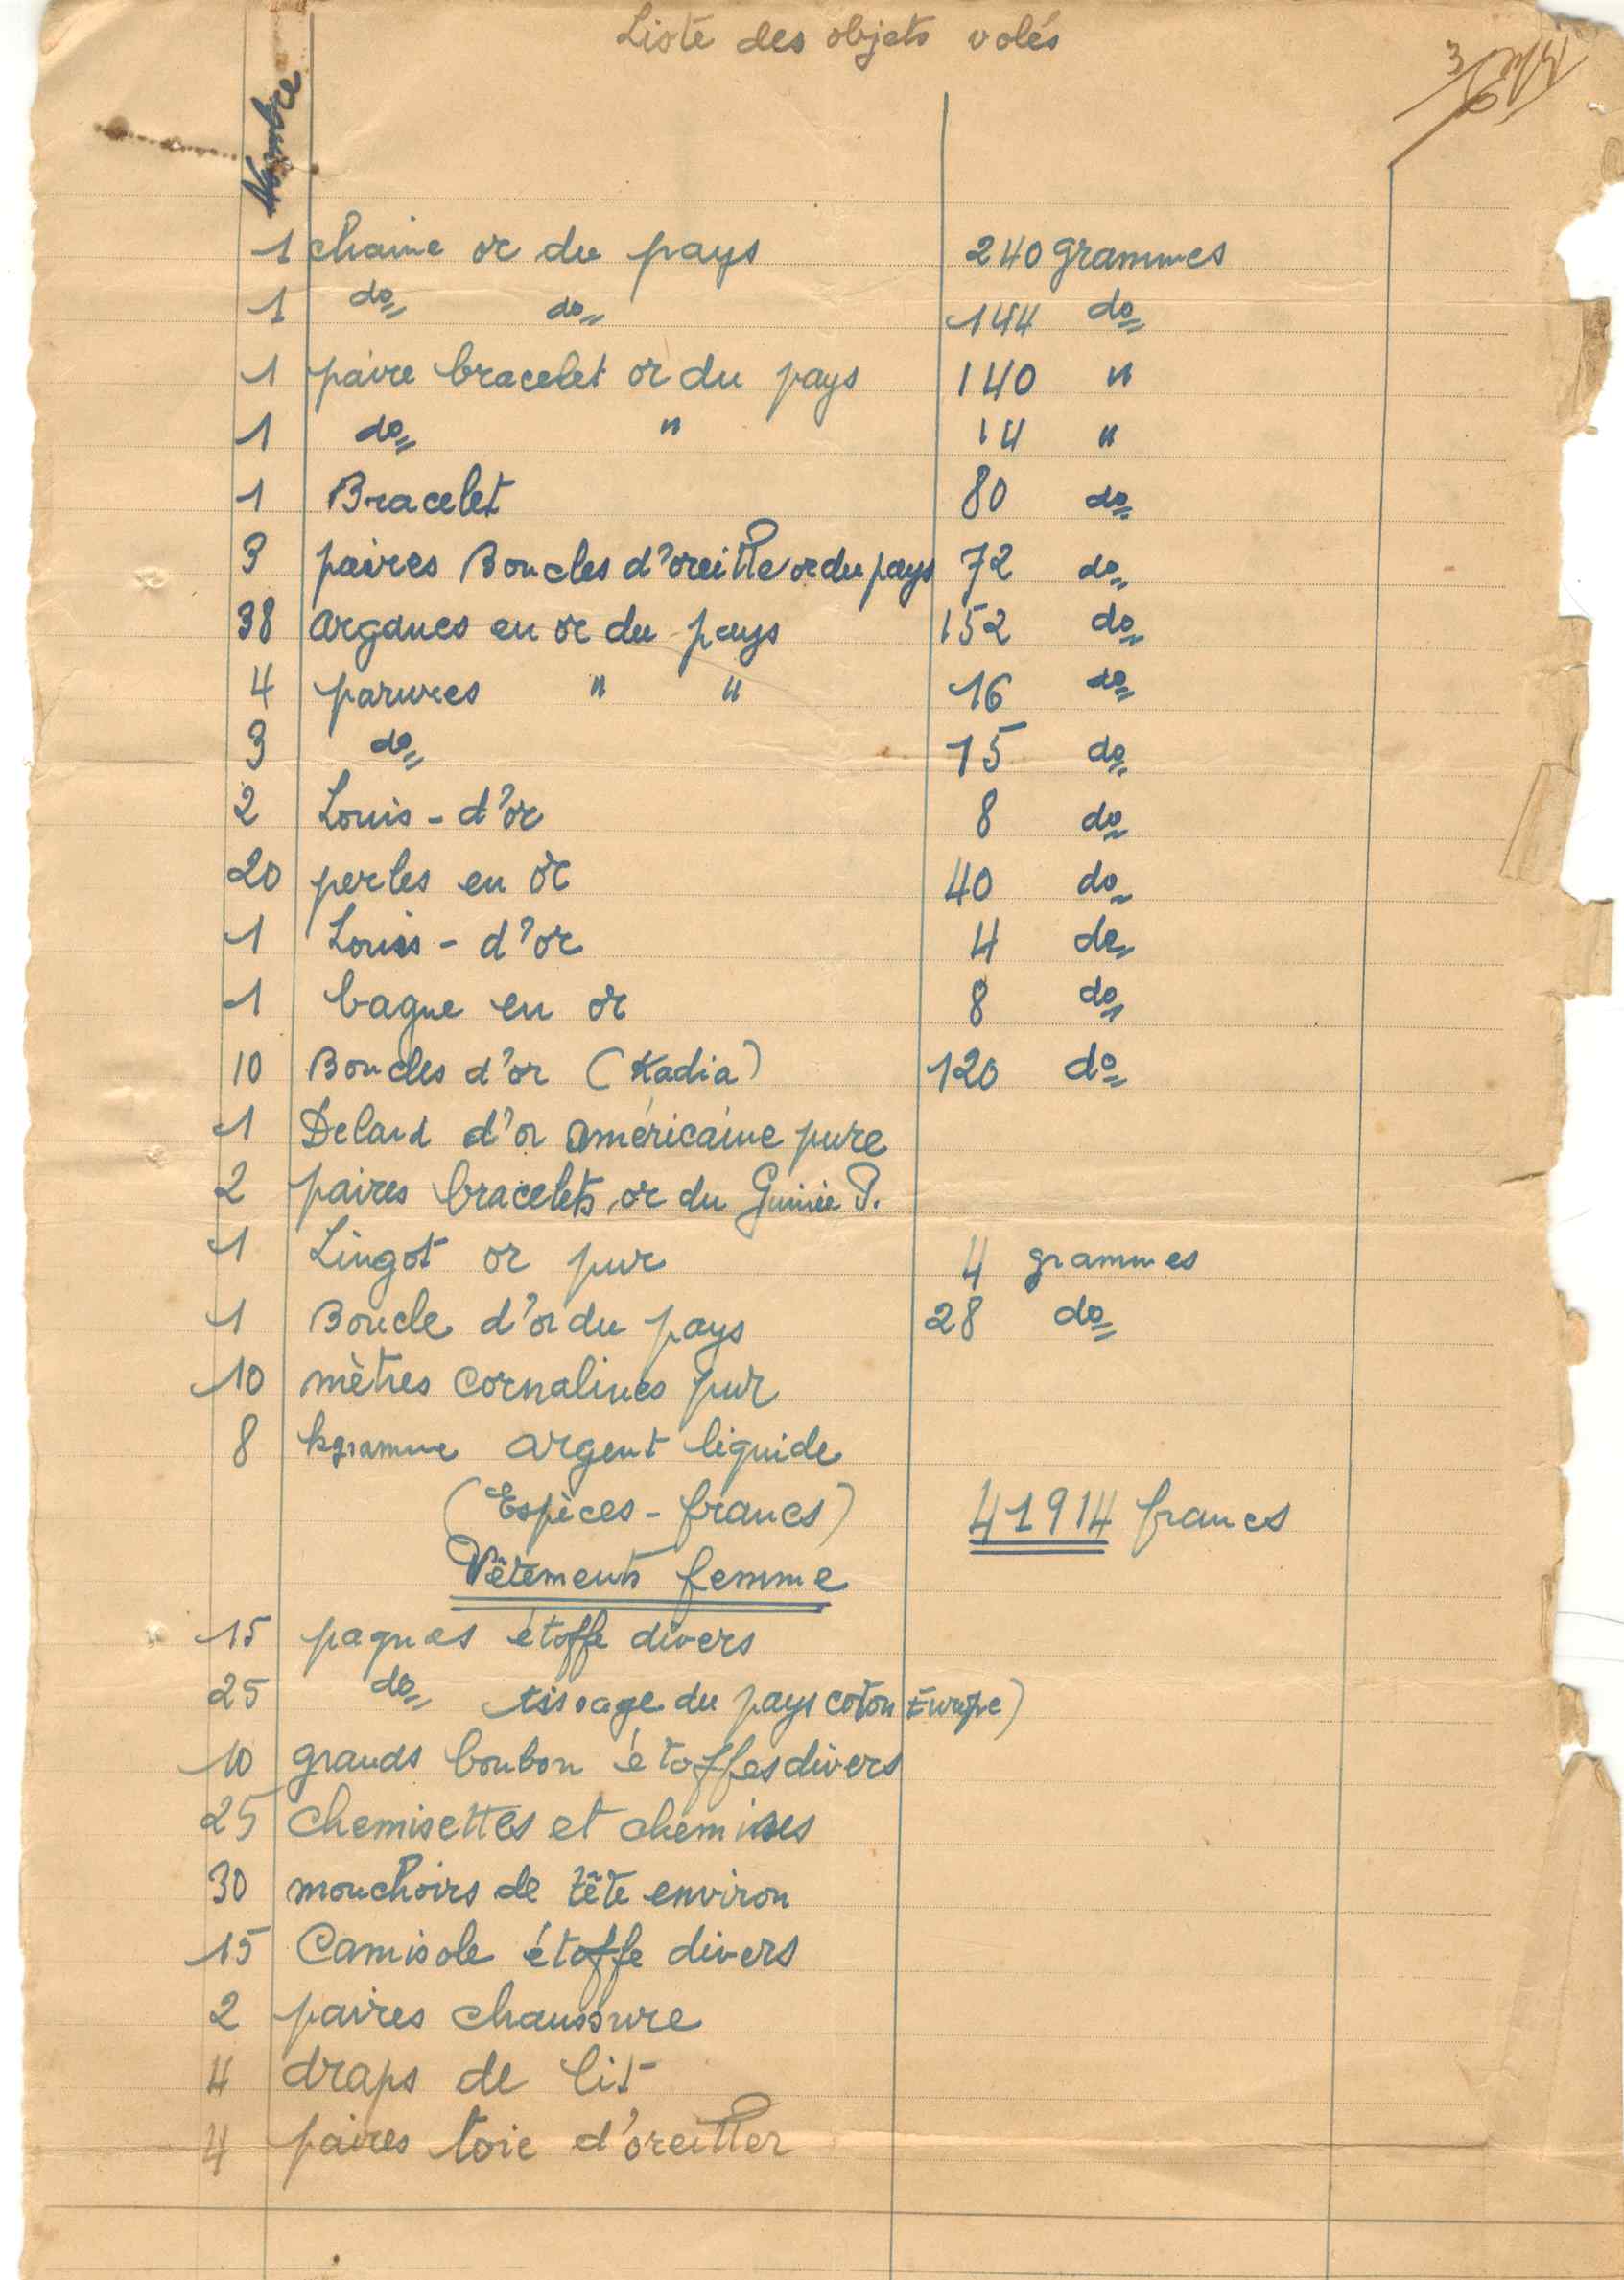 Liste des objets volés
Nombre
1 chaine or du pays 240 grammes
1 do do 144 do
1 paire bracelet or du pays 140 "
1 do " 14 "
1 Bracelet 80 do
3 paires Boucles d'oreille or du pays 72 do
38 arganes en or du pays 152 do
4 parures " " 16 do
3 do 15 do
2 Louis - d'or 8 do
20 perles en or 40 do
1 Louis - d'or 4 do
1 bague en or 8 do
10 Boucles d'or (Kadia) 120 do
1 Delard d'or américaine pure
2 paires bracelets or du Guinée P.
1 Lingot or pur 4 grammes
1 Boucle d'or du pays 28 do
10 mètres cornalines pur
8 kgramme argent liquide
(Espèces - francs) 41914 francs
Vêtements femme
15 pagnes étoffe divers
25 do tissage du pays coton Europe)
10 grands boubou étoffes divers
25 chemisettes et chemises
30 mouchoirs de tête environ
15 Camisole étoffe divers
2 paires chaussure
4 draps de lit
4 paires toie d'oreiller